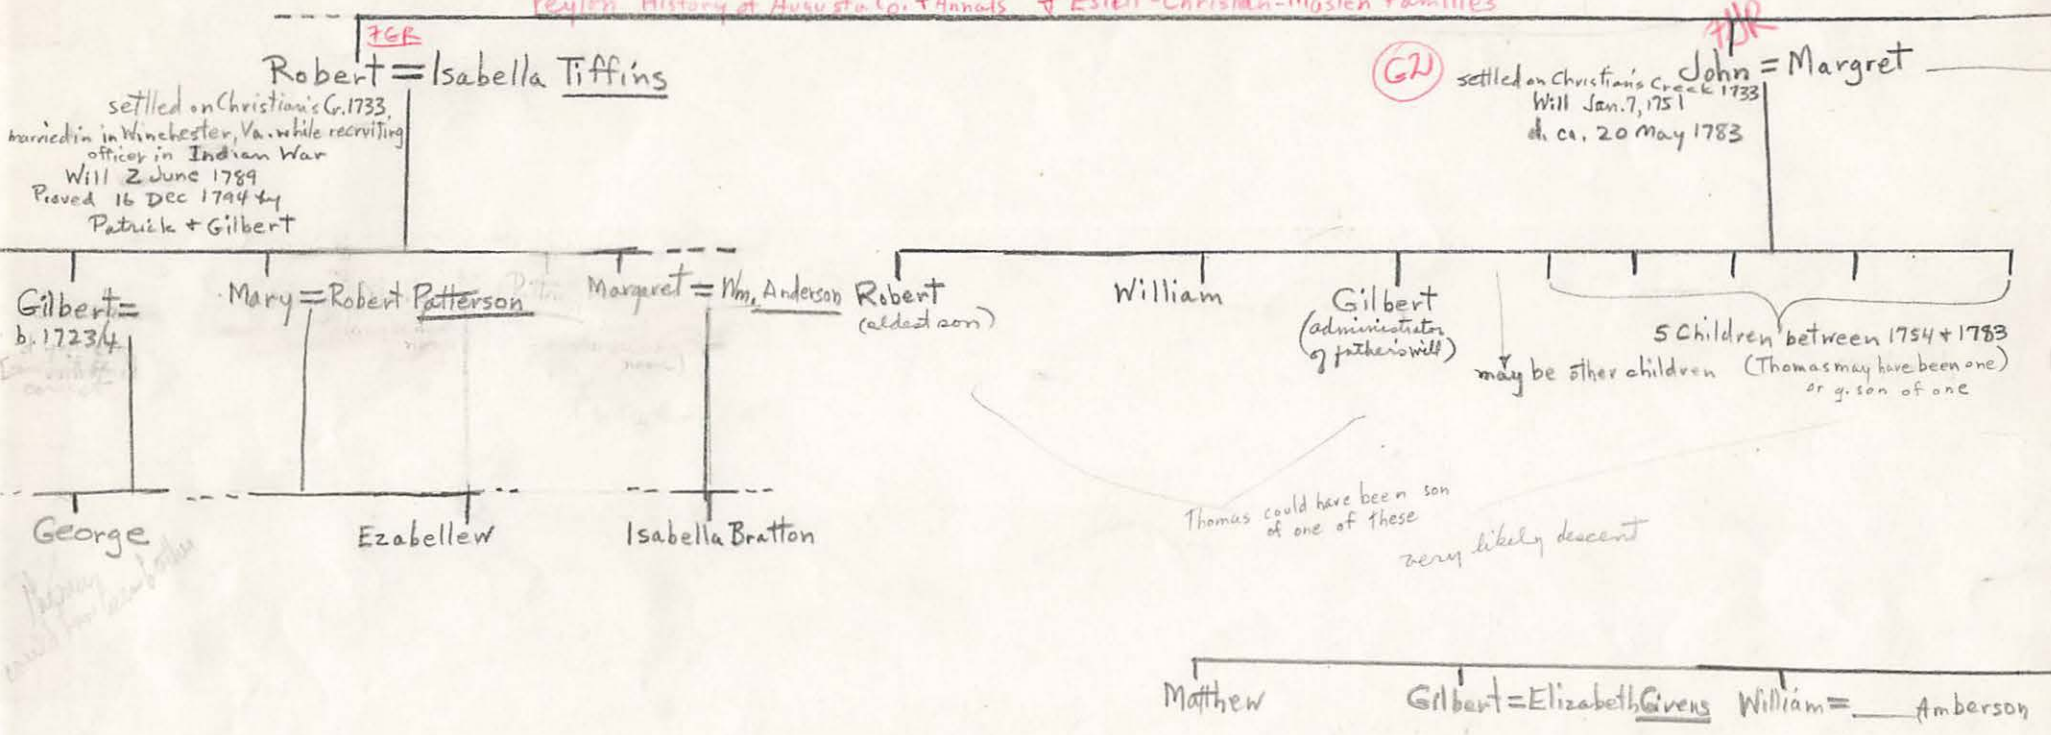 Peyton History of Augusta Co. + Annals & Estill-Christian-Maslen Families
7GR
Robert = Isabella Tiffins
settled on Christian's Cr. 1733,
married in in Winchester, Va. while recruiting
officer in Indian War
Will 2 June 1789
Proved 16 Dec 1794 by
Patrick + Gilbert
GN
John = Margret
settled on Christian's Creek 1733
Will Jan. 7, 1751
d. ca. 20 May 1783
Gilbert =
b. 1723/4
Mary = Robert Patterson
Margaret = Wm. Anderson
Robert
(eldest son)
William
Gilbert
(administrator
of father's will)
may be other children
5 Children between 1754 + 1783
(Thomas may have been one)
or g. son of one
George
Ezabellew
Isabella Bratton
Thomas could have been son
of one of these
very likely descent
Matthew
Gilbert = Elizabeth Givens
William = ___ Amberson